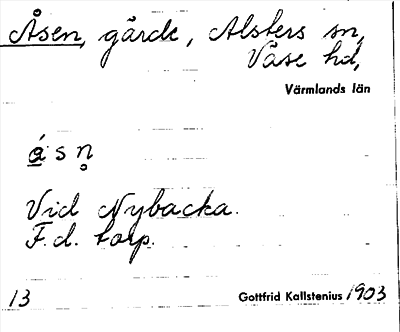 Åsen, gärde, Alsters sn,
Väse hd,
Värmlands län
á s n̥
Vid Nybacka.
F.d. torp.
13 Gottfrid Kallstenius 1903